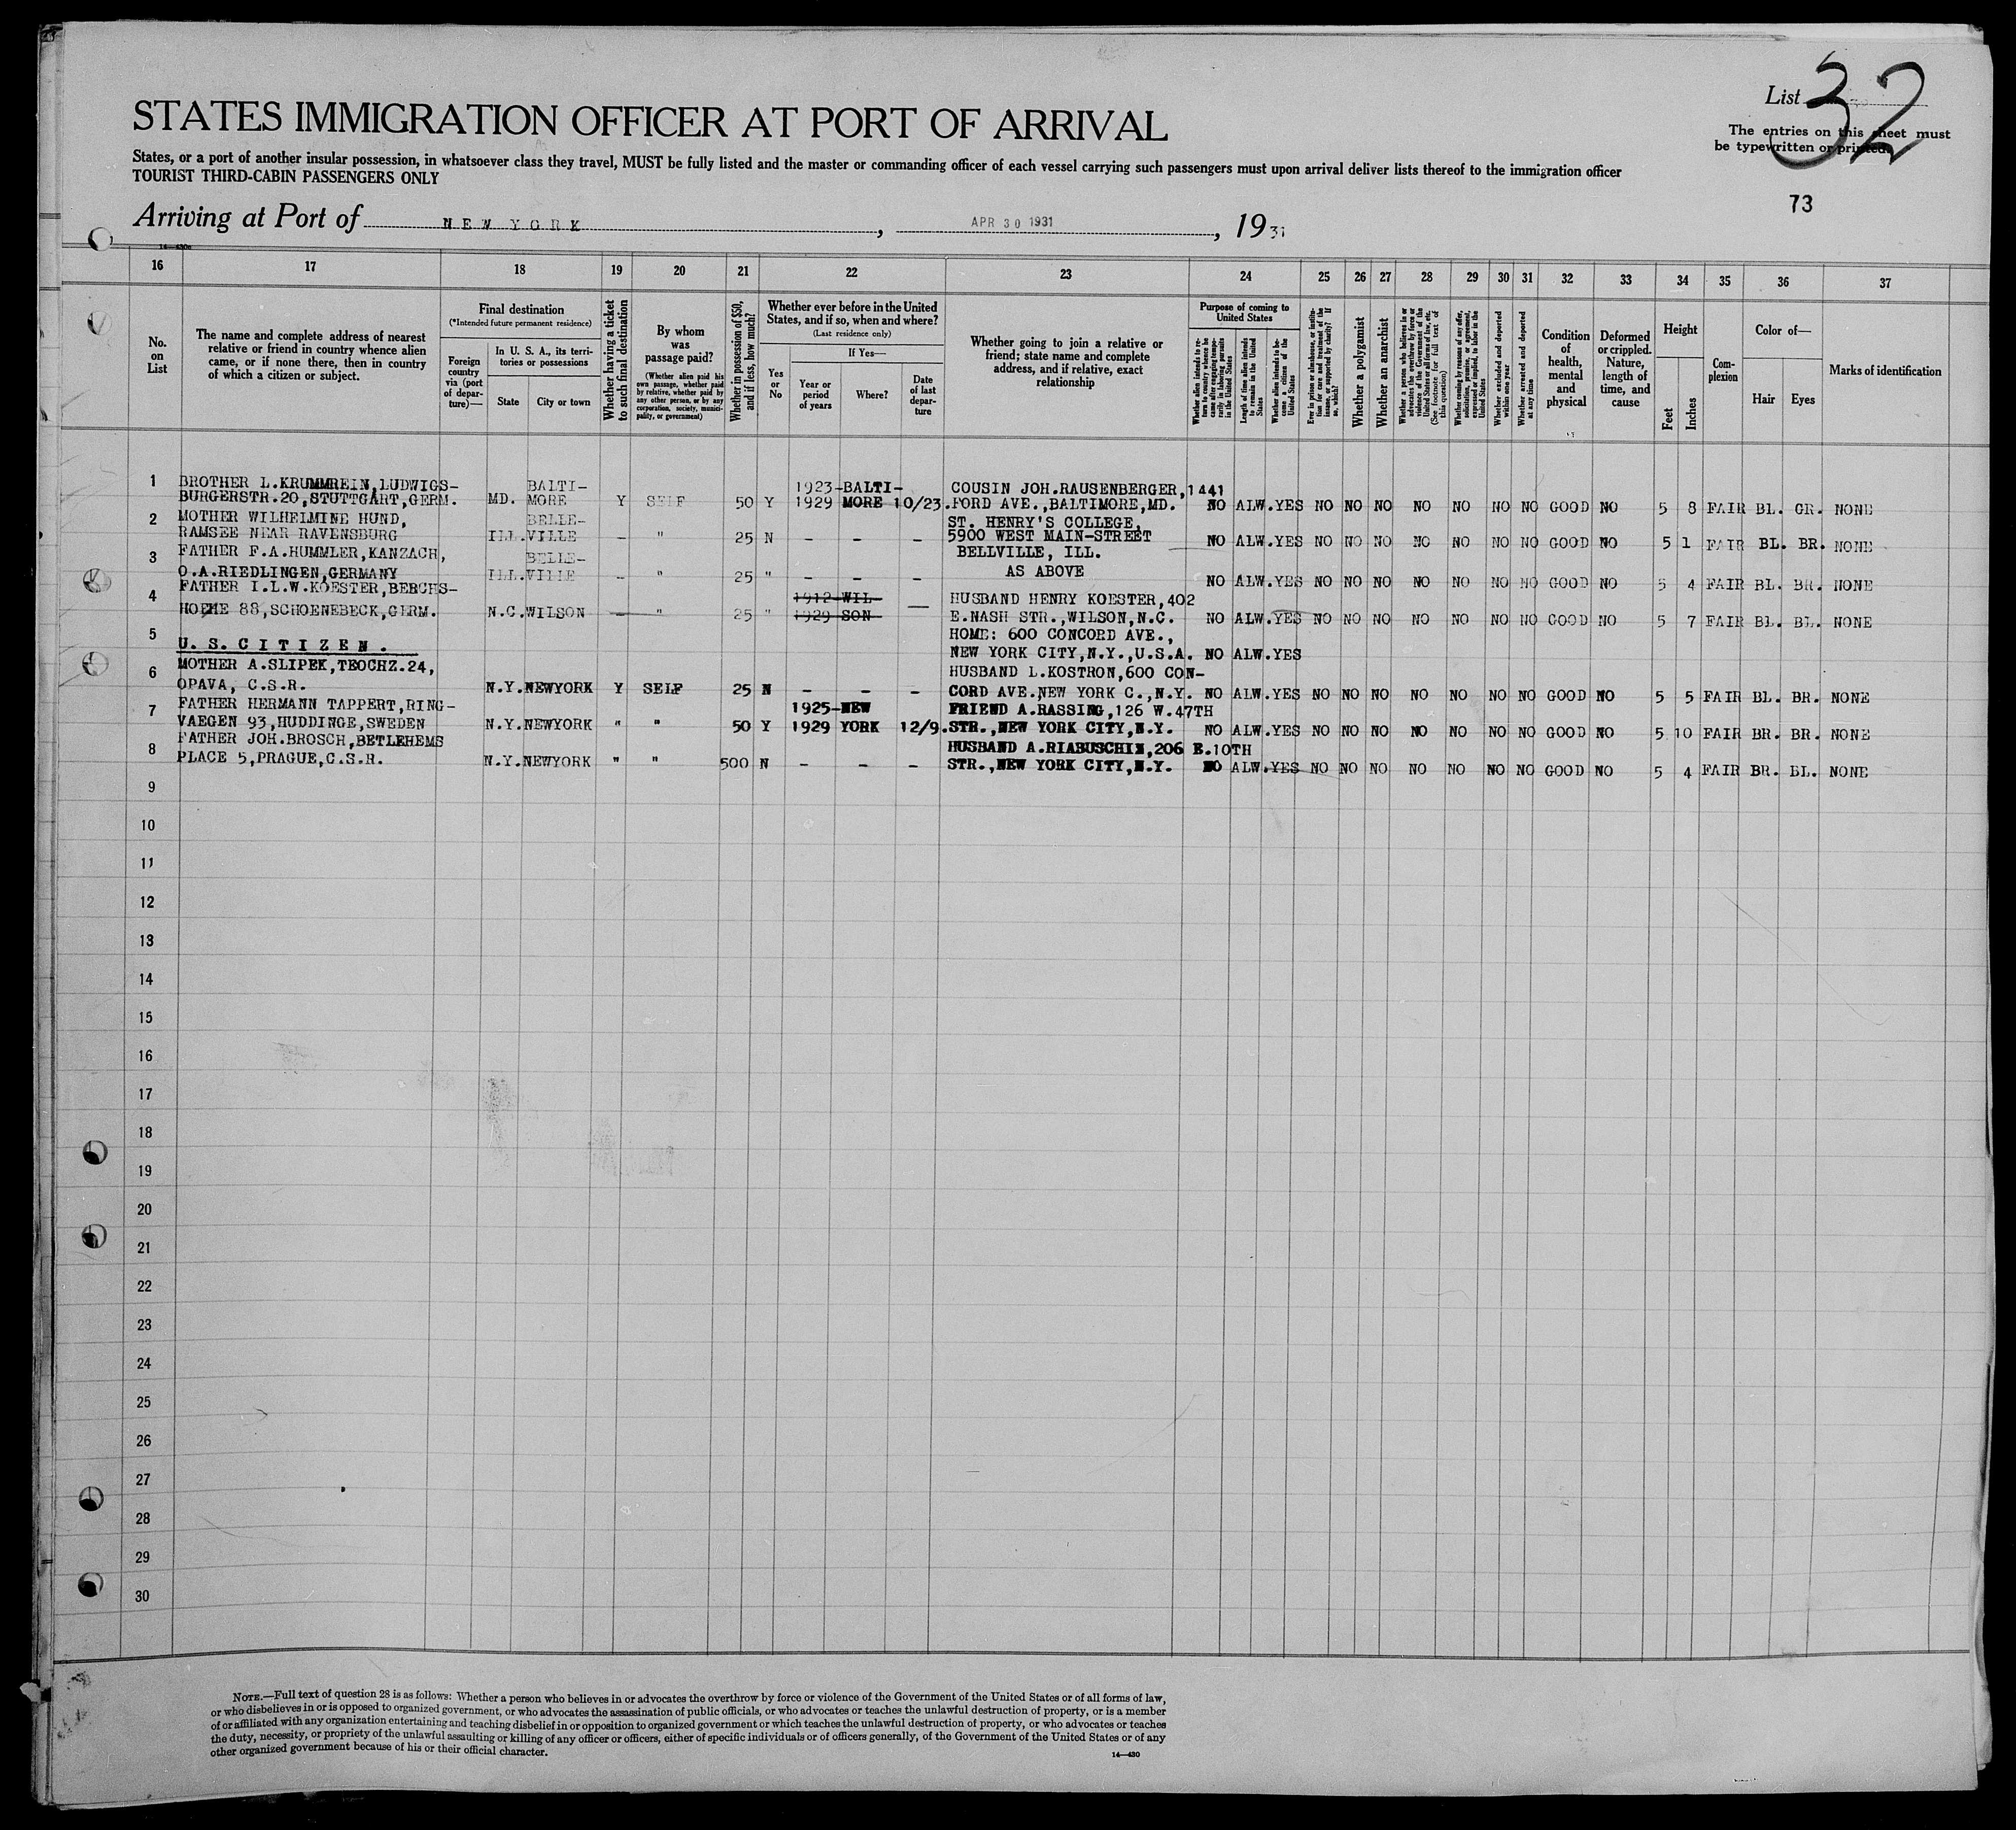 List 32
STATES IMMIGRATION OFFICER AT PORT OF ARRIVAL
The entries on this sheet must
be typewritten or printed.
States, or a port of another insular possession, in whatsoever class they travel, MUST be fully listed and the master or commanding officer of each vessel carrying such passengers must upon arrival deliver lists thereof to the immigration officer
TOURIST THIRD-CABIN PASSENGERS ONLY
73
Arriving at Port of NEW YORK, APR 30 1931, 1931
16 17 18 19 20 21 22 23 24 25 26 27 28 29 30 31 32 33 34 35 36 37
No. on List
The name and complete address of nearest
relative or friend in country whence alien
came, or if none there, then in country
of which a citizen or subject.
Final destination
(*Intended future permanent residence)
Foreign country via (port of departure)—
In U. S. A., its territories or possessions
State
City or town
Whether having a ticket to such final destination
By whom was passage paid?
(Whether alien paid his own passage, whether paid by relative, whether paid by any other person, or by any corporation, society, municipality, or government)
Whether in possession of $50, and if less, how much?
Whether ever before in the United States, and if so, when and where?
(Last residence only)
Yes or No
If Yes—
Year or period of years
Where?
Date of last departure
Whether going to join a relative or friend; state name and complete address, and if relative, exact relationship
Purpose of coming to United States
Whether alien intends to return to country whence he came after engaging temporarily in laboring pursuits in the United States
Length of time alien intends to remain in the United States
Whether alien intends to become a citizen of the United States
Ever in prison or almshouse, or institution for care and treatment of the insane, or supported by charity? If so, which?
Whether a polygamist
Whether an anarchist
Whether a person who believes in or advocates the overthrow by force or violence of the Government of the United States or all forms of law, etc. (See footnote for full text of this question)
Whether coming by reason of any offer, solicitation, promise, or agreement, expressed or implied, to labor in the United States
Whether excluded and deported within one year
Whether arrested and deported at any time
Condition of health, mental and physical
Deformed or crippled. Nature, length of time, and cause
Height
Feet
Inches
Complexion
Color of—
Hair
Eyes
Marks of identification
1 BROTHER L.KRUMMREIN,LUDWIGS- BALTI- 1923-BALTI- COUSIN JOH.RAUSENBERGER,1441
BURGERSTR.20,STUTTGART,GERM. MD. MORE Y SELF 50 Y 1929 MORE 10/23.FORD AVE.,BALTIMORE,MD. NO ALW.YES NO NO NO NO NO NO NO GOOD NO 5 8 FAIR BL. GR. NONE
2 MOTHER WILHELMINE HUND, BELLE- ST. HENRY'S COLLEGE,
RAMSEE NEAR RAVENSBURG ILL.VILLE - " 25 N - - - 5900 WEST MAIN-STREET NO ALW.YES NO NO NO NO NO NO NO GOOD NO 5 1 FAIR BL. BR. NONE
3 FATHER F.A.HUMMLER,KANZACH, BELLE- BELLVILLE, ILL.
O.A.RIEDLINGEN,GERMANY ILL.VILLE - " 25 " - - - AS ABOVE NO ALW.YES NO NO NO NO NO NO NO GOOD NO 5 4 FAIR BL. BR. NONE
4 FATHER I.L.W.KOESTER,BERCHS- 1912-WIL- HUSBAND HENRY KOESTER,402
HOEHE 88,SCHOENEBECK,GERM. N.C.WILSON - " 25 " 1929 SON — E.NASH STR.,WILSON,N.C. NO ALW.YES NO NO NO NO NO NO NO GOOD NO 5 7 FAIR BL. BL. NONE
5 U.S.CITIZEN. HOME: 600 CONCORD AVE.,
NEW YORK CITY,N.Y.,U.S.A. NO ALW.YES
6 MOTHER A.SLIPEK,TEOCHZ.24, HUSBAND L.KOSTRON,600 CON-
OPAVA, C.S.R. N.Y.NEWYORK Y SELF 25 N - - - CORD AVE.NEW YORK C.,N.Y. NO ALW.YES NO NO NO NO NO NO NO GOOD NO 5 5 FAIR BL. BR. NONE
7 FATHER HERMANN TAPPERT,RING- 1925-NEW FRIEND A.RASSING,126 W.47TH
VAEGEN 93,HUDDINGE,SWEDEN N.Y.NEWYORK " " 50 Y 1929 YORK 12/9.STR.,NEW YORK CITY,N.Y. NO ALW.YES NO NO NO NO NO NO NO GOOD NO 5 10 FAIR BR. BR. NONE
8 FATHER JOH.BROSCH,BETLEHEMS HUSBAND A.RIABUSCHIN,206 E.10TH
PLACE 5,PRAGUE,C.S.R. N.Y.NEWYORK " " 500 N - - - STR.,NEW YORK CITY,N.Y. NO ALW.YES NO NO NO NO NO NO NO GOOD NO 5 4 FAIR BR. BL. NONE
9
10
11
12
13
14
15
16
17
18
19
20
21
22
23
24
25
26
27
28
29
30
NOTE.—Full text of question 28 is as follows: Whether a person who believes in or advocates the overthrow by force or violence of the Government of the United States or of all forms of law,
or who disbelieves in or is opposed to organized government, or who advocates the assassination of public officials, or who advocates or teaches the unlawful destruction of property, or is a member
of or affiliated with any organization entertaining and teaching disbelief in or opposition to organized government or which teaches the unlawful destruction of property, or who advocates or teaches
the duty, necessity, or propriety of the unlawful assaulting or killing of any officer or officers, either of specific individuals or of officers generally, of the Government of the United States or of any
other organized government because of his or their official character.
14—430